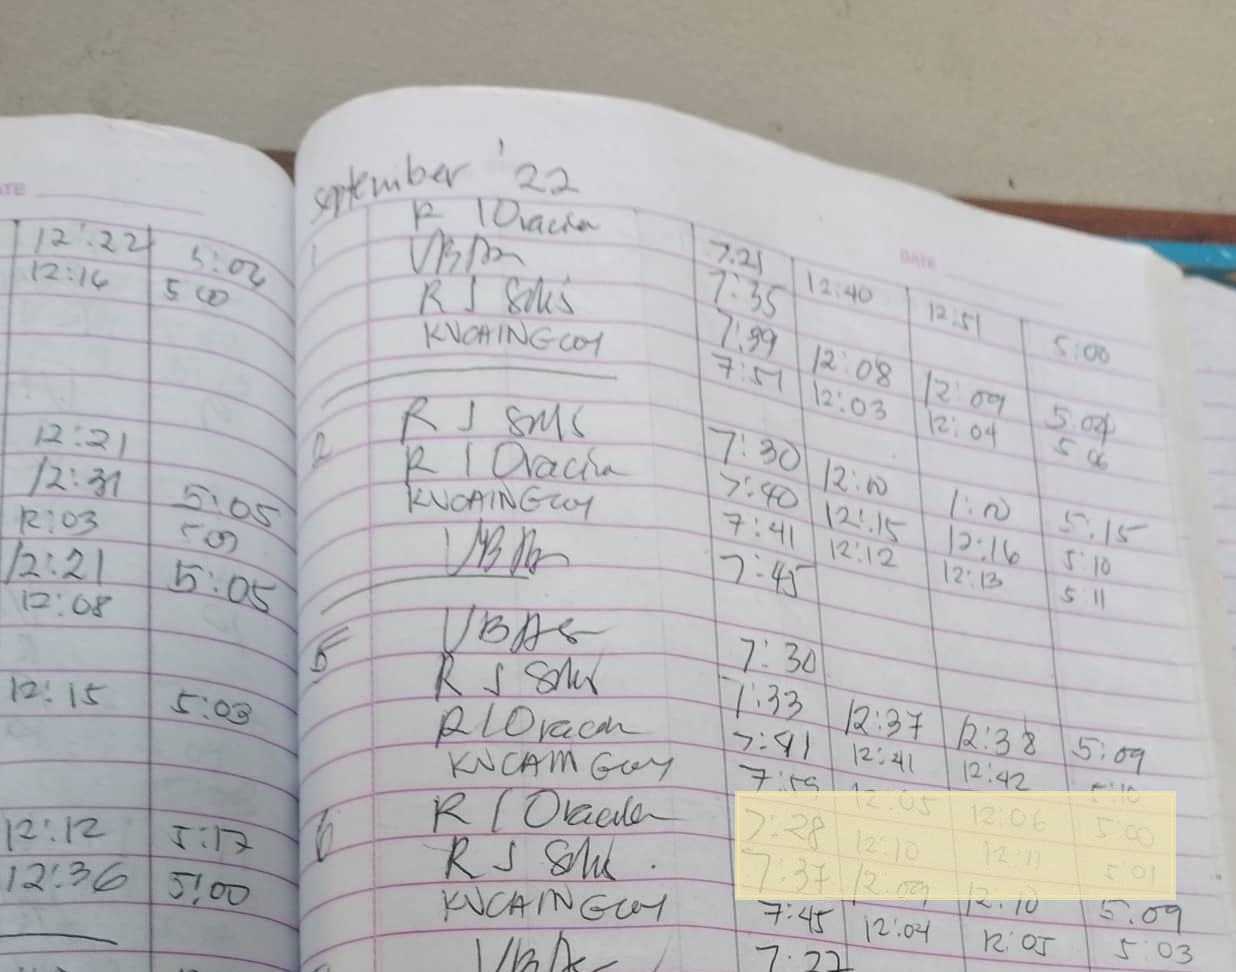 ATE
12:22 5:04
12:14 5 00
12:21
12:31 5:05
12:03 5 09
12:21 5:05
12:08
12:15 5:03
12:12 5:17
12:36 5:00
September '22
DATE
1 R I Oracion 7:21 12:40 12:51 5:00
7:35
R J 7:39 12:08 12:09 5:04
KNCAINGCOY 7:51 12:03 12:04 5 06
2 R J 7:30 12:10 1:10 5:15
R I Oracion 7:40 12:15 12:16 5:10
KNCAINGCOY 7:41 12:12 12:13 5 11
7:45
5 7:30
R J 7:33 12:37 12:38 5:09
R I Oracion 7:41 12:41 12:42 5:10
KNCAINGCOY 7:59 12:05 12:06 5:00
6 R I Oracion 7:28 12:10 12:11 5:01
R J 7:37 12:09 12:10 5:09
KNCAINGCOY 7:45 12:04 12:05 5:03
7:27